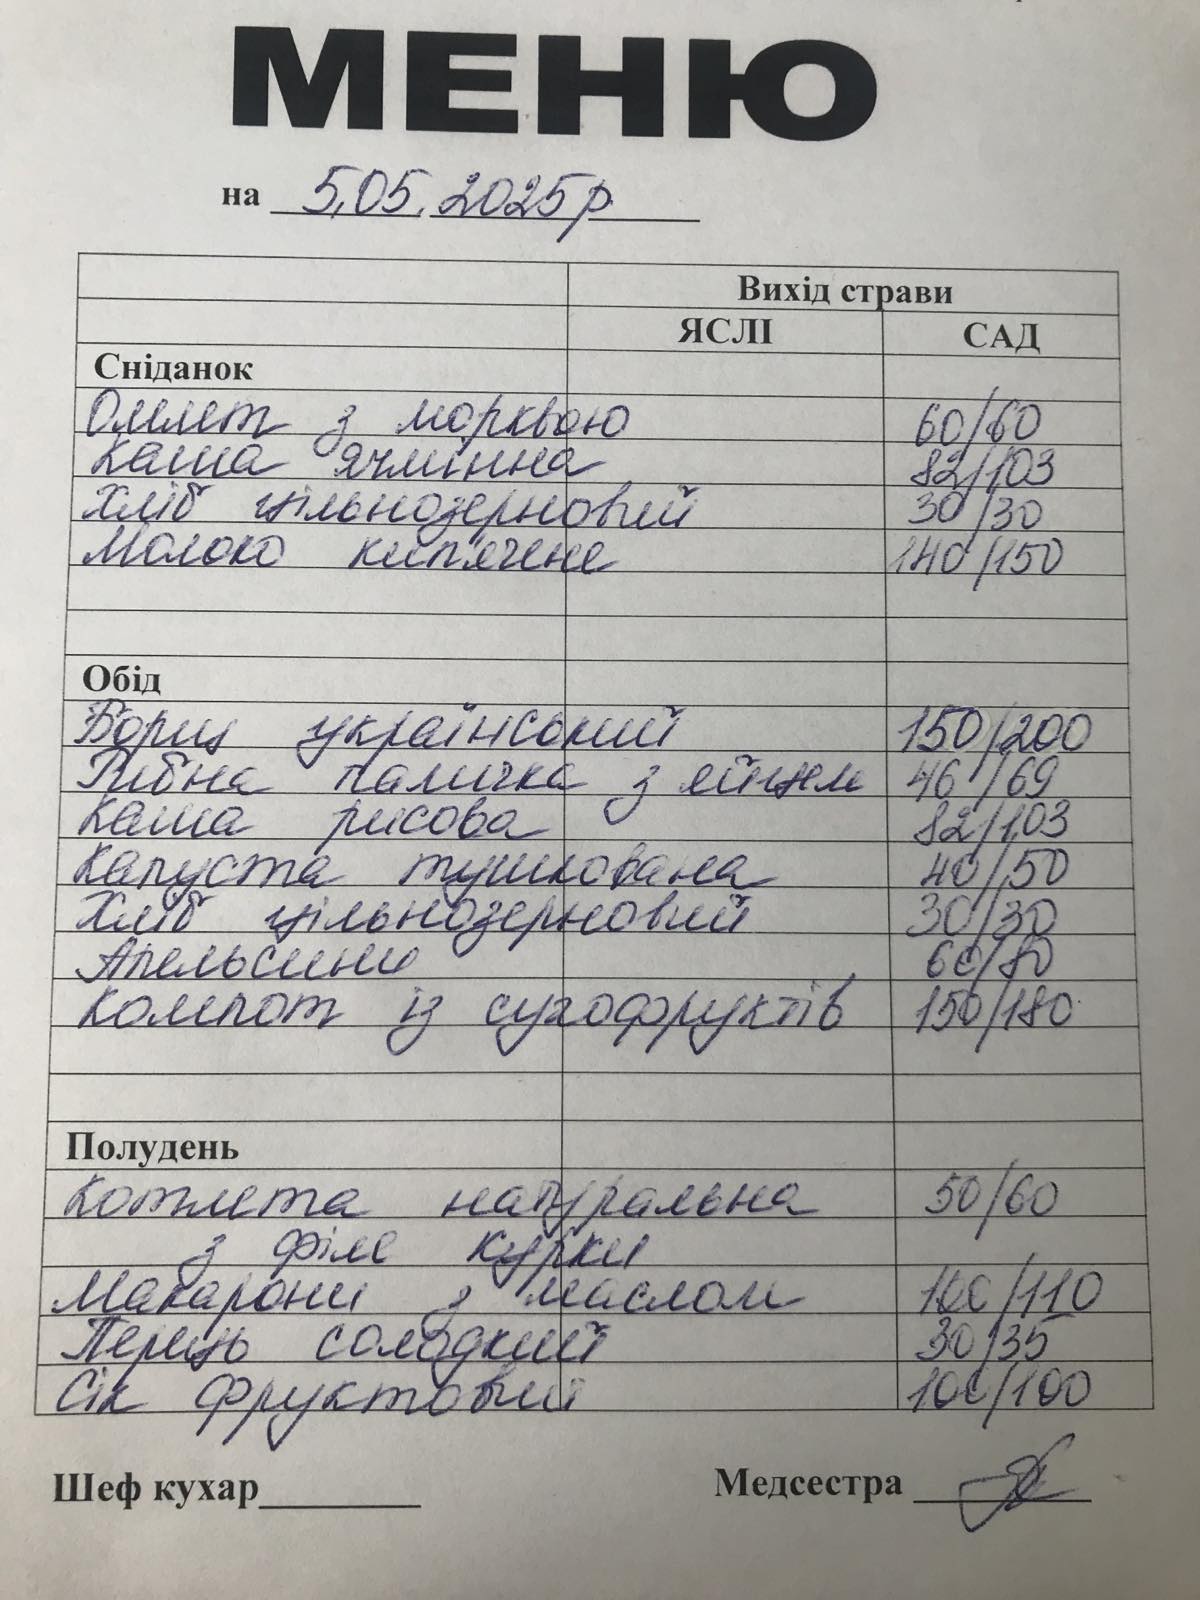 МЕНЮ
на 5.05.2025р.
Вихід страви
ЯСЛІ САД
Сніданок
Омлет з морквою 60/60
Каша ячмінна 82/103
Хліб цільнозерновий 30/30
Молоко кип'ячене 140/150
Обід
Борщ український 150/200
Рибна паличка з яйцем 46/69
Каша рисова 82/103
Капуста тушкована 40/50
Хліб цільнозерновий 30/30
Апельсини 60/80
Компот із сухофруктів 150/180
Полудень
Котлета натуральна 50/60
з філе курки
Макарони з маслом 100/110
Перець солодкий 30/35
Сік фруктовий 100/100
Шеф кухар Медсестра